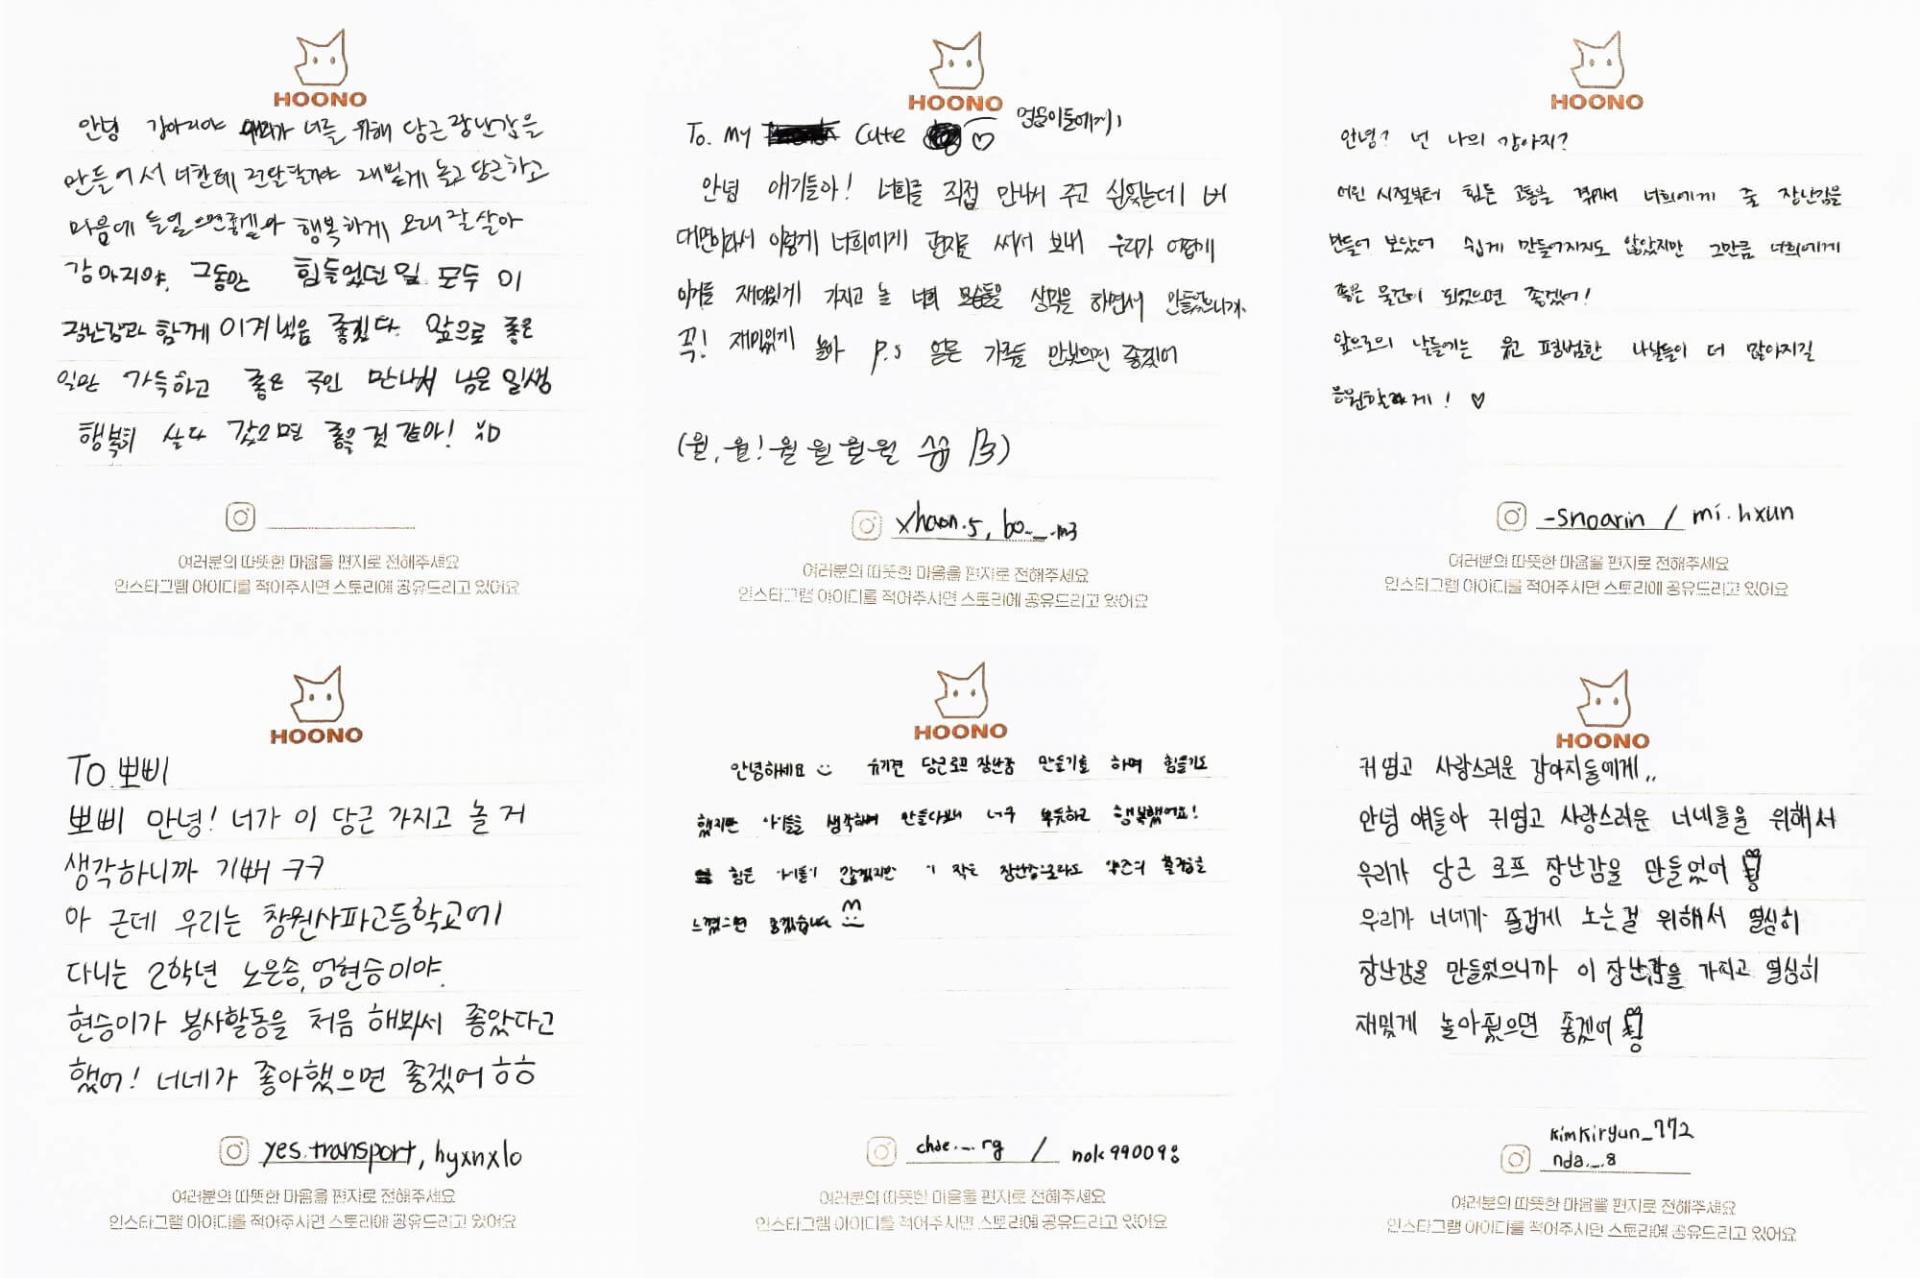 HOONO
안녕 강아지야 우리가 너를 위해 당근장난감을
만들어서 너한테 전달할거야 재밌게 놀고 당근하고
마음에 들었으면좋겠어 행복하게 오래 잘 살아
강아지야, 그동안 힘들었던 일 모두 이
장난감과 함께 이겨냈음 좋겠다. 앞으로 좋은
일만 가득하고 좋은 주인 만나서 남은 일생
행복히 살다 갔으면 좋을 것 같아! :D
여러분의 따뜻한 마음을 편지로 전해주세요
인스타그램 아이디를 적어주시면 스토리에 공유드리고 있어요
HOONO
To. My Cute ♡ 멍뭉이들에게
안녕 애기들아! 너희를 직접 만나서 주고 싶었는데 비
대면이라서 이렇게 너희에게 편지로 써서 보내 우리가 어떻게
이거를 재미있게 가지고 놀 너희 모습들을 상상을 하면서 만들었으니까.
꼭! 재미있게 놀아 P.S 얼른 가족을 만났으면 좋겠어
(월, 월! 월 월 월 월)
xhaon.5, bo._._.m3
여러분의 따뜻한 마음을 편지로 전해주세요
인스타그램 아이디를 적어주시면 스토리에 공유드리고 있어요
HOONO
안녕? 넌 나의 강아지?
어린 시절부터 힘든 고통을 겪어서 너희에게 줄 장난감을
만들어 보았어 쉽게 만들어지지도 않았지만 그만큼 너희에게
좋은 물건이 되었으면 좋겠어!
앞으로의 날들에는 웃고 평범한 나날들이 더 많아지길
응원할게! ♡
-snoarin / mi.hxun
여러분의 따뜻한 마음을 편지로 전해주세요
인스타그램 아이디를 적어주시면 스토리에 공유드리고 있어요
HOONO
To.뽀삐
뽀삐 안녕! 너가 이 당근 가지고 놀 거
생각하니까 기뻐 ㅋㅋ
아 근데 우리는 창원사파고등학교에
다니는 2학년 노은송,엄현승이야.
현승이가 봉사활동을 처음 해봐서 좋았다고
했어! 너네가 좋아했으면 좋겠어 ㅎㅎ
yes.transport, hyxnxlo
여러분의 따뜻한 마음을 편지로 전해주세요
인스타그램 아이디를 적어주시면 스토리에 공유드리고 있어요
HOONO
안녕하세요 유기견 당근로프 장난감 만들기를 하며 힘들기도
했지만 아이들을 생각하며 만들다보니 너무 뿌듯하고 행복했어요!
힘든 아이들이 많겠지만 이 작은 장난감으로라도 약간의 즐거움을
느꼈으면 좋겠습니다
choe._.rg / nok990098
여러분의 따뜻한 마음을 편지로 전해주세요
인스타그램 아이디를 적어주시면 스토리에 공유드리고 있어요
HOONO
귀엽고 사랑스러운 강아지들에게..
안녕 얘들아 귀엽고 사랑스러운 너네들을 위해서
우리가 당근 로프 장난감을 만들었어
우리가 너네가 즐겁게 노는걸 위해서 열심히
장난감을 만들었으니까 이 장난감을 가지고 열심히
재밌게 놀아줬으면 좋겠어
kimkiryun_772
nda._.8
여러분의 따뜻한 마음을 편지로 전해주세요
인스타그램 아이디를 적어주시면 스토리에 공유드리고 있어요